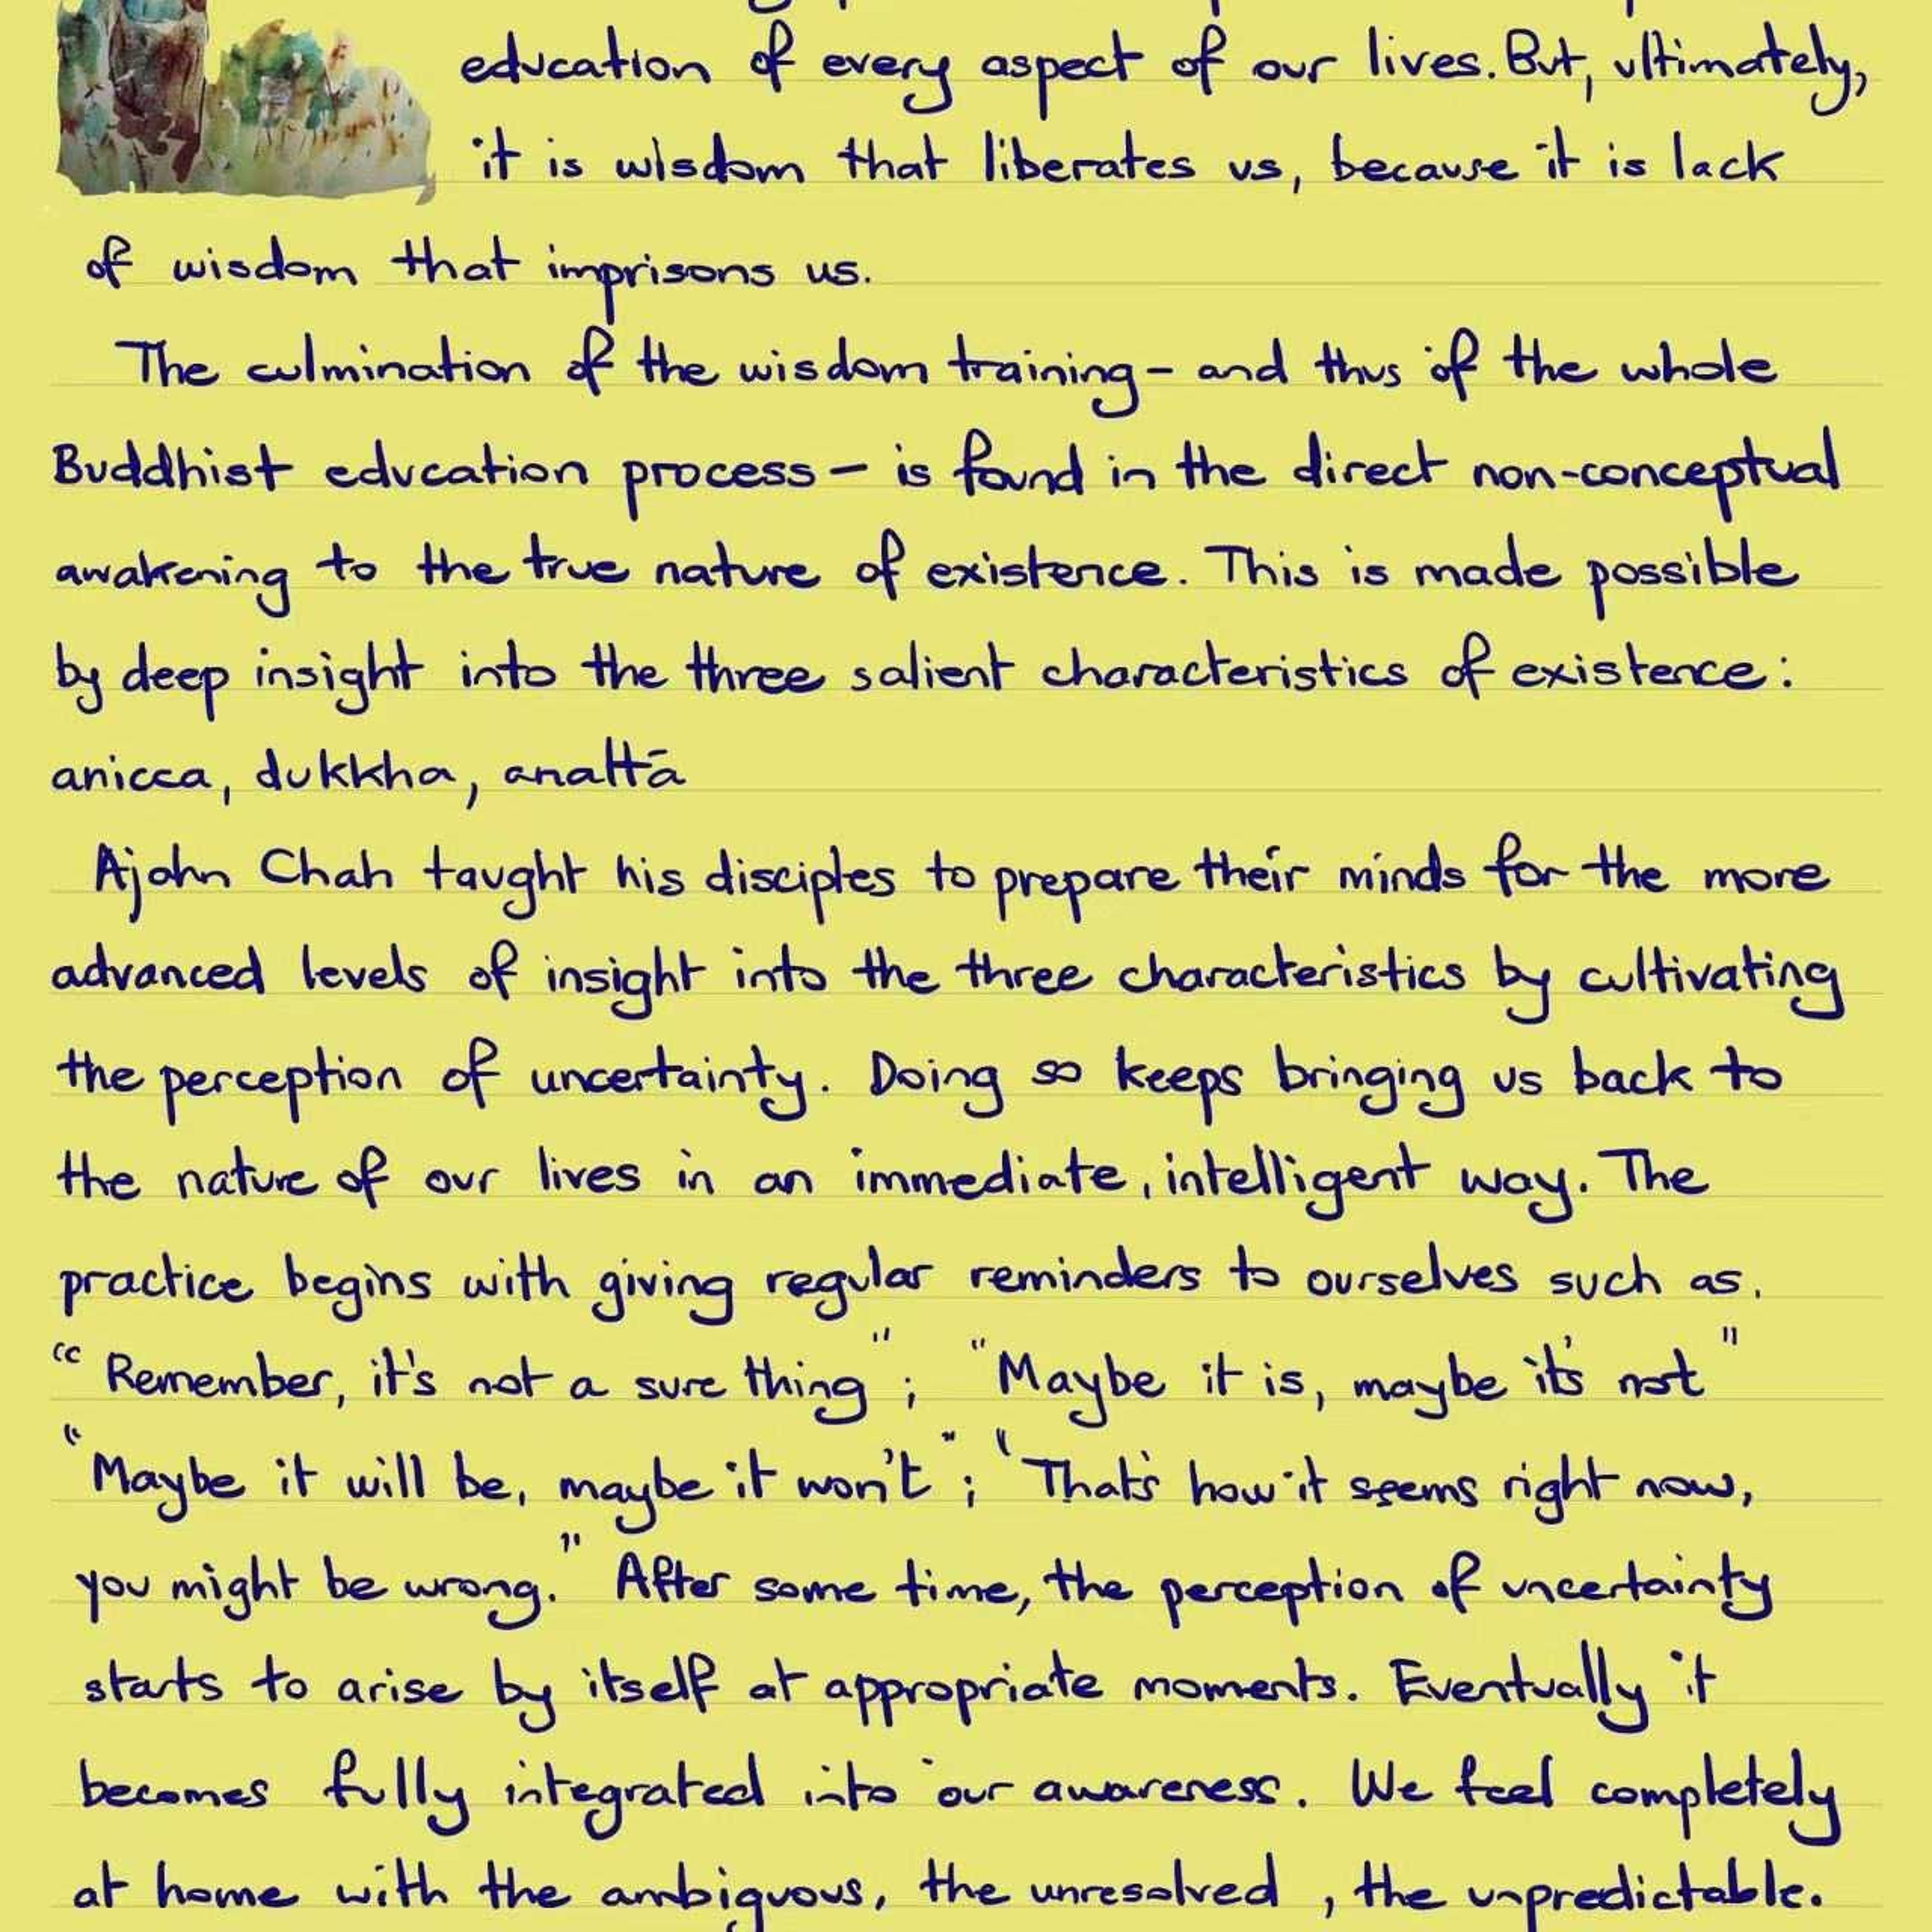 education of every aspect of our lives. But, ultimately,
it is wisdom that liberates us, because it is lack
of wisdom that imprisons us.
The culmination of the wisdom training - and thus of the whole
Buddhist education process - is found in the direct non-conceptual
awakening to the true nature of existence. This is made possible
by deep insight into the three salient characteristics of existence:
anicca, dukkha, anattā
Ajahn Chah taught his disciples to prepare their minds for the more
advanced levels of insight into the three characteristics by cultivating
the perception of uncertainty. Doing so keeps bringing us back to
the nature of our lives in an immediate, intelligent way. The
practice begins with giving regular reminders to ourselves such as,
"Remember, it's not a sure thing"; "Maybe it is, maybe it's not"
"Maybe it will be, maybe it won't"; "That's how it seems right now,
you might be wrong." After some time, the perception of uncertainty
starts to arise by itself at appropriate moments. Eventually it
becomes fully integrated into our awareness. We feel completely
at home with the ambiguous, the unresolved, the unpredictable.